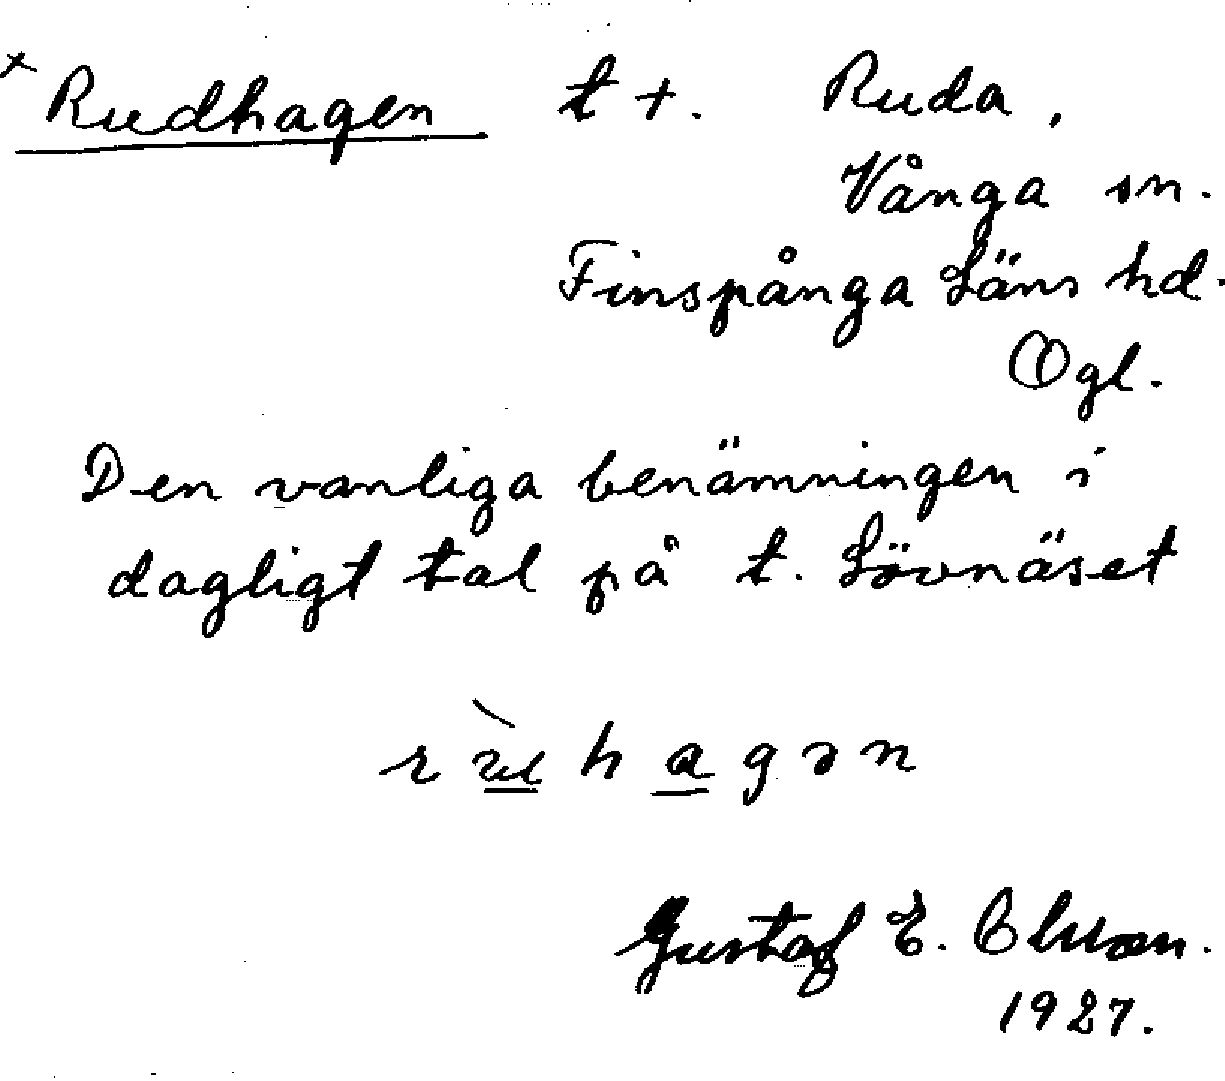 × Rudhagen t +. Ruda,
Vånga sn.
Finspånga Läns hd.
Ögl.
Den vanliga benämningen i
dagligt tal på t. Lövnäset
rùhagən
Gustaf E. Olsson.
1927.